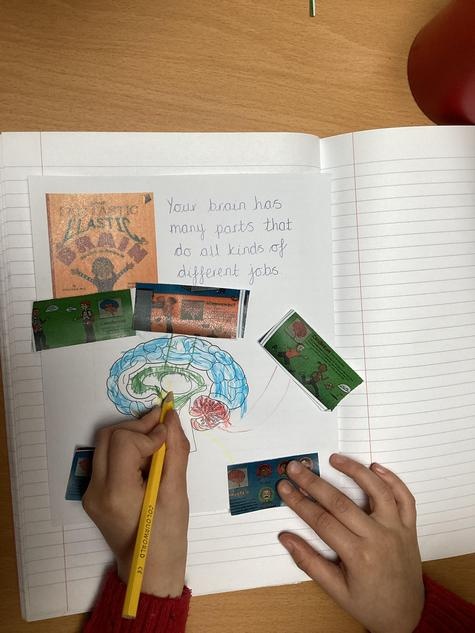 YOUR
FANTASTIC
ELASTIC
BRAIN
Your brain has
many parts that
do all kinds of
different jobs.
COLOURWORLD
CE